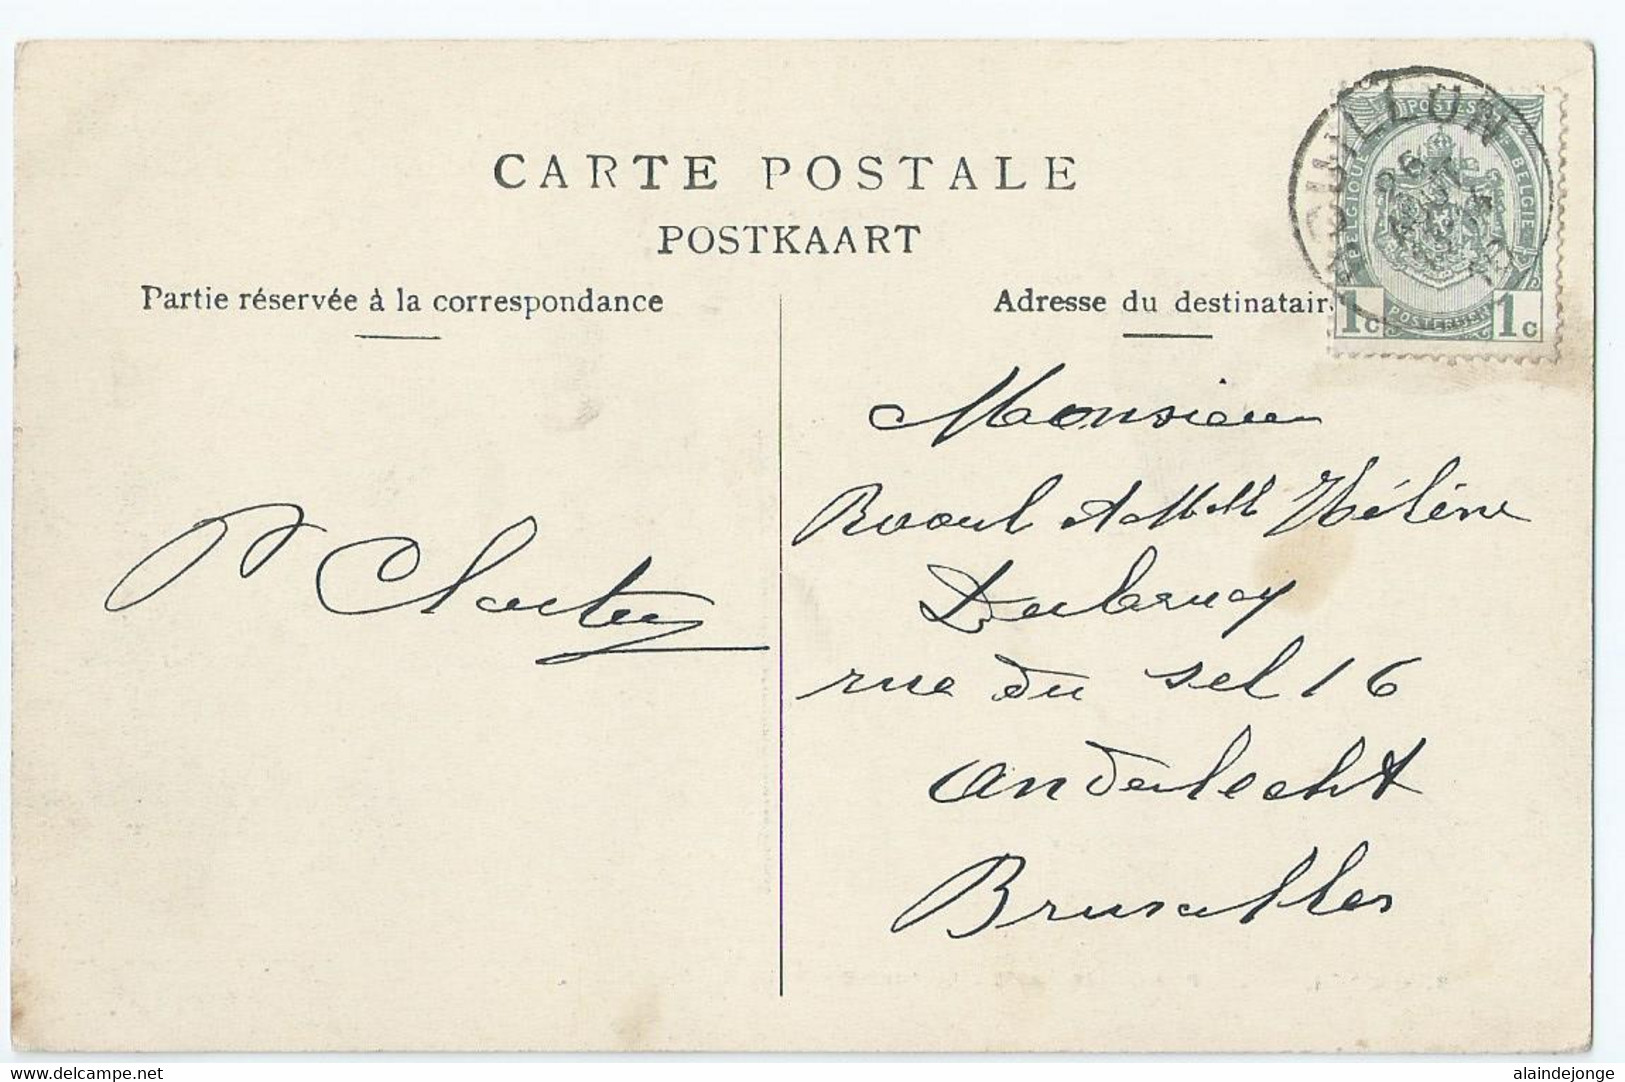 CARTE POSTALE
POSTKAART
Partie réservée à la correspondance
Adresse du destinatair
BOUILLON
26
POSTES
BELGIQUE
BELGIE
1c POSTERIJEN 1c
Monsieur
Raoul et Mlle Hélène
rue du sel 16
Anderlecht
Bruxelles
www.delcampe.net
alaindejonge